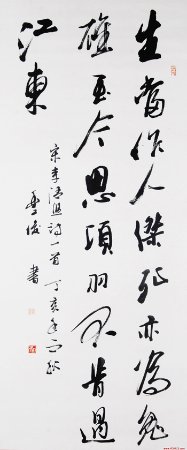 生當作人傑死亦為鬼
雄至今思項羽不肯過
江東
宋李清照詩一首丁亥年
書